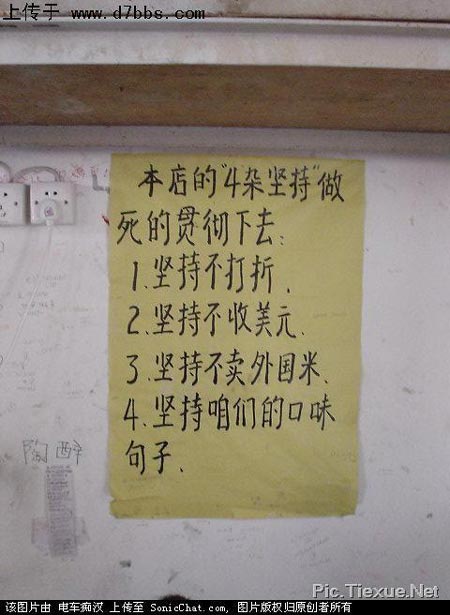 上传于 www.d7bbs.com
本店的"4杂坚持"做
死的贯彻下去:
1.坚持不打折.
2.坚持不收美元.
3.坚持不卖外国米.
4.坚持咱们的口味
句子.
陶醉
Pic.Tiexue.Net
该图片由 电车痴汉 上传至 SonicChat.com, 图片版权归原创者所有